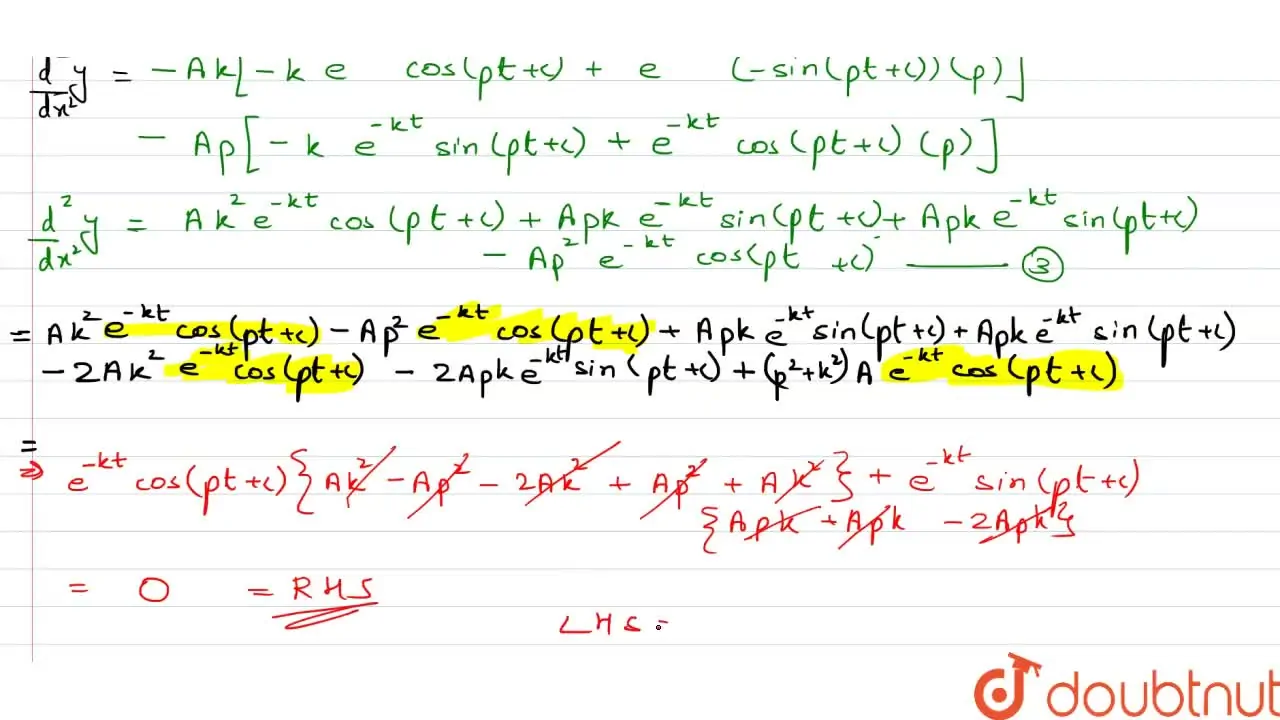 d y / dx² = - Ak[-k e cos(pt+c) + e (-sin(pt+c))(p)]
- Ap[-k e^-kt sin(pt+c) + e^-kt cos(pt+c) (p)]
d²y / dx² = Ak² e^-kt cos(pt+c) + Apk e^-kt sin(pt+c) + Apk e^-kt sin(pt+c)
- Ap² e^-kt cos(pt +c) ——— ③
= Ak² e^-kt cos(pt+c) - Ap² e^-kt cos(pt+c) + Apk e^-kt sin(pt+c) + Apk e^-kt sin(pt+c)
- 2Ak² e^-kt cos(pt+c) - 2Apk e^-kt sin(pt+c) + (p²+k²) A e^-kt cos(pt+c)
=
⇒ e^-kt cos(pt+c) {Ak² - Ap² - 2Ak² + Ap² + Ak²} + e^-kt sin(pt+c)
{Apk + Apk - 2Apk}
= 0 = RHS
LHS =
doubtnut